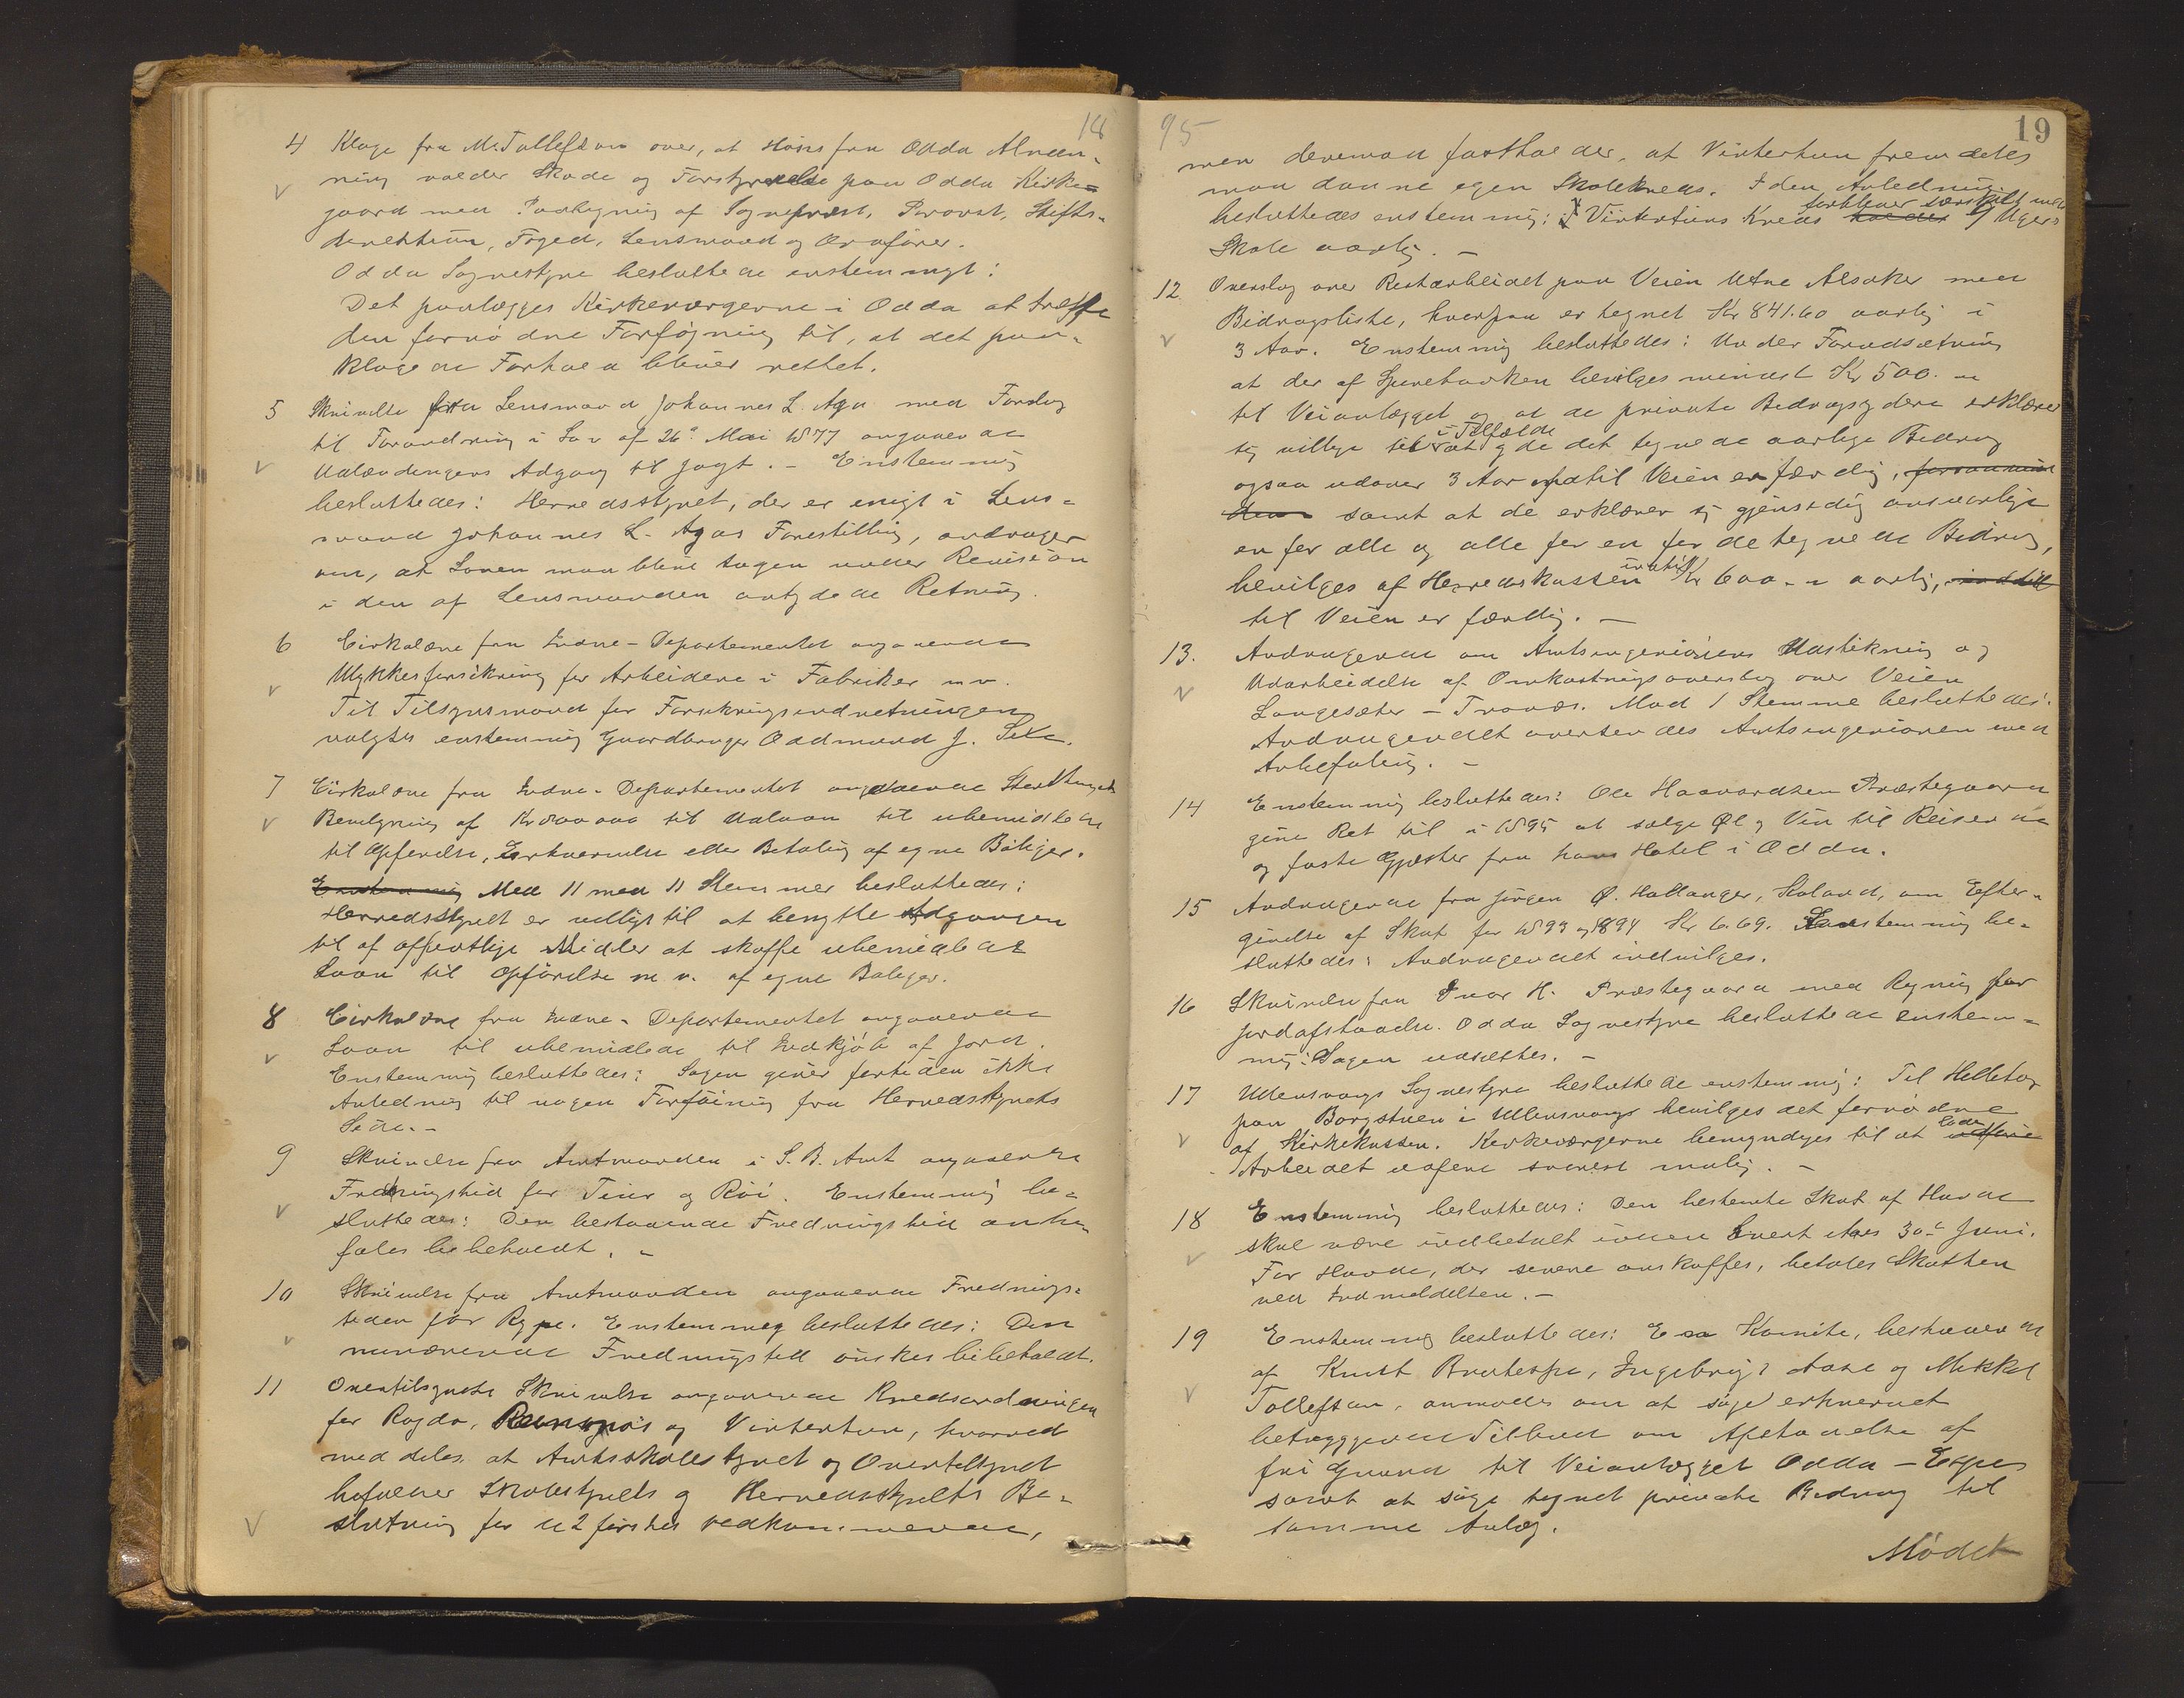 18
4 Klage fra M. Tollefsen over, at Høns fra Odda Almen-
ning volder Skade og Forstyrrelse paa Odda Kirke-
gaard med Paategning af Sogneprest, Provst, Stifts-
direktion, Foged, Lensmand og Ordfører.
Odda Sognestyre besluttede enstemmigt:
Det paalægges Kirkeværgerne i Odda at træffe
den fornødne Forføjning til, at det paa-
klagede Forhold bliver rettet.
5 Skrivelse fra Lensmand Johannes L. Aga med Forslag
til Forandring i Lov af 26de Mai 1877 angaaende
Udlændingers Adgang til Jagt. - Enstemmig
besluttedes: Herredsstyret, der er enigt i Lens-
mand Johannes L. Agas Forestilling, andrager
om, at Loven maa blive tagen under Revision
i den af Lensmanden antydede Retning.
6 Cirkulære fra Indre-Departementet angaaende
Ulykkesforsikring for Arbeidere i Fabriker m.v.
Til Tilsynsmand for Forsikringsindretningen
valgtes enstemmig Gaardbruger Oddmund J. Sexe.
7 Cirkulære fra Indre-Departementet angaaende Storthingets
Bevilgning af Kr 500 000 til Udlaan til ubemidlede
til Opførelse, Erhvervelse eller Betaling af egne Boliger.
Enstemmig Med 11 mod 11 Stemmer besluttedes:
Herredsstyret er villigt til at benytte Adgangen
til af offentlige Midler at skaffe ubemidlede
Laan til Opførelse m.v. af egne Boliger.
8 Cirkulære fra Indre-Departementet angaaende
Laan til ubemidlede til Indkjøb af Jord.
Enstemmig besluttedes: Sagen giver fortiden ikke
Anledning til nogen Forføining fra Herredsstyrets
Side. -
9 Skrivelse fra Amtmanden i S. B. Amt angaaende
Fredningstid for Tiur og Røi. Enstemmig be-
sluttedes: Den bestaaende Fredningstid anbe-
fales bibeholdt. -
10 Skrivelse fra Amtmanden angaaende Frednings-
tiden for Rype. Enstemmig besluttedes: Den
nuværende Fredningstid ønskes bibeholdt.
11 Overtilsynets Skrivelse angaaende Kredsordningen
for Ragde, og Vintertun, hvorved
meddeles, at Amtsskolestyret og Overtilsynet
bifalder Skolestyrets og Herredsstyrets Be-
slutning for de 2 førstes vedkommende,
95 19
men derimod fastholder, at Vintertun fremdeles
maa danne egen Skolekreds. I den Anledning
besluttedes enstemmig: I Vintertuns Kreds holdes forbliver særskilt med 9 Ugers
Skole aarlig. -
12. Overslag over Restarbeidet paa Veien Utne Alsaker med
Bidragsliste, hvorpaa er tegnet Kr 841.60 aarlig i
3 Aar. Enstemmig besluttedes: Under Forudsætning
at der af Sparebanken bevilges mindst Kr 500.-
til Veianlægget og at de private Bidragsydere erklærer
sig villige til i Tilfælde at yde det tegnede aarlige Bidrag
ogsaa udover 3 Aar indtil Veien er færdig,
samt at de erklærer sig gjensidig ansvarlige
en for alle og alle for en for de tegnede Bidrag,
bevilges af Herredskassen indtil Kr 600.- aarlig, indtil
til Veien er færdig. -
13. Andragende om Amtsingeniørens Udstikning og
Udarbeidelse af Omkostningsoverslag over Veien
Langesæter - Tronæs. Mod 1 Stemme besluttedes:
Andragendet oversendes Amtsingeniøren med
Anbefaling. -
14 Enstemmig besluttedes: Ole Haavardsen Præstegaard
gives Ret til i 1895 at sælge Øl og Vin til Reisende
og faste Gjæster fra hans Hotel i Odda.
15 Andragende fra Jørgen Ø. Hallanger, Skoland, om Efter-
givelse af Skat for 1893 og 1894 Kr 6.69. Enstemmig be-
sluttedes: Andragendet indvilges.
16 Skrivelse fra Ivar H. Præstegaard med Regning for
Jordafstaaelse. Odda Sognestyre besluttede enstem-
mig: Sagen udsættes. -
17 Ullensvangs Sognestyre besluttede enstemmig: Til Helletag
paa Borgstuen i Ullensvang bevilges det fornødne
af Kirkekassen. Kirkeværgerne bemyndiges til at udføre lade
Arbeidet udføre snarest mulig. -
18 Enstemmig besluttedes: Den bestemte Skat af Hunde
skal være indbetalt innen hvert Aars 30te Juni.
For Hunde, der senere anskaffes, betales Skatten
ved Indmeldelsen. -
19 Enstemmig besluttedes: En Komite, bestaaende
af Knut Bratespe, Ingebrigt Aase og Mikkel
Tollefsen, anmodes om at søge erhvervet
betryggende Tilbud om Afstaaelse af
fri Grund til Veianlægget Odda - Espe
samt at søge tegnet private Bidrag til
samme Anlæg.
Mødet